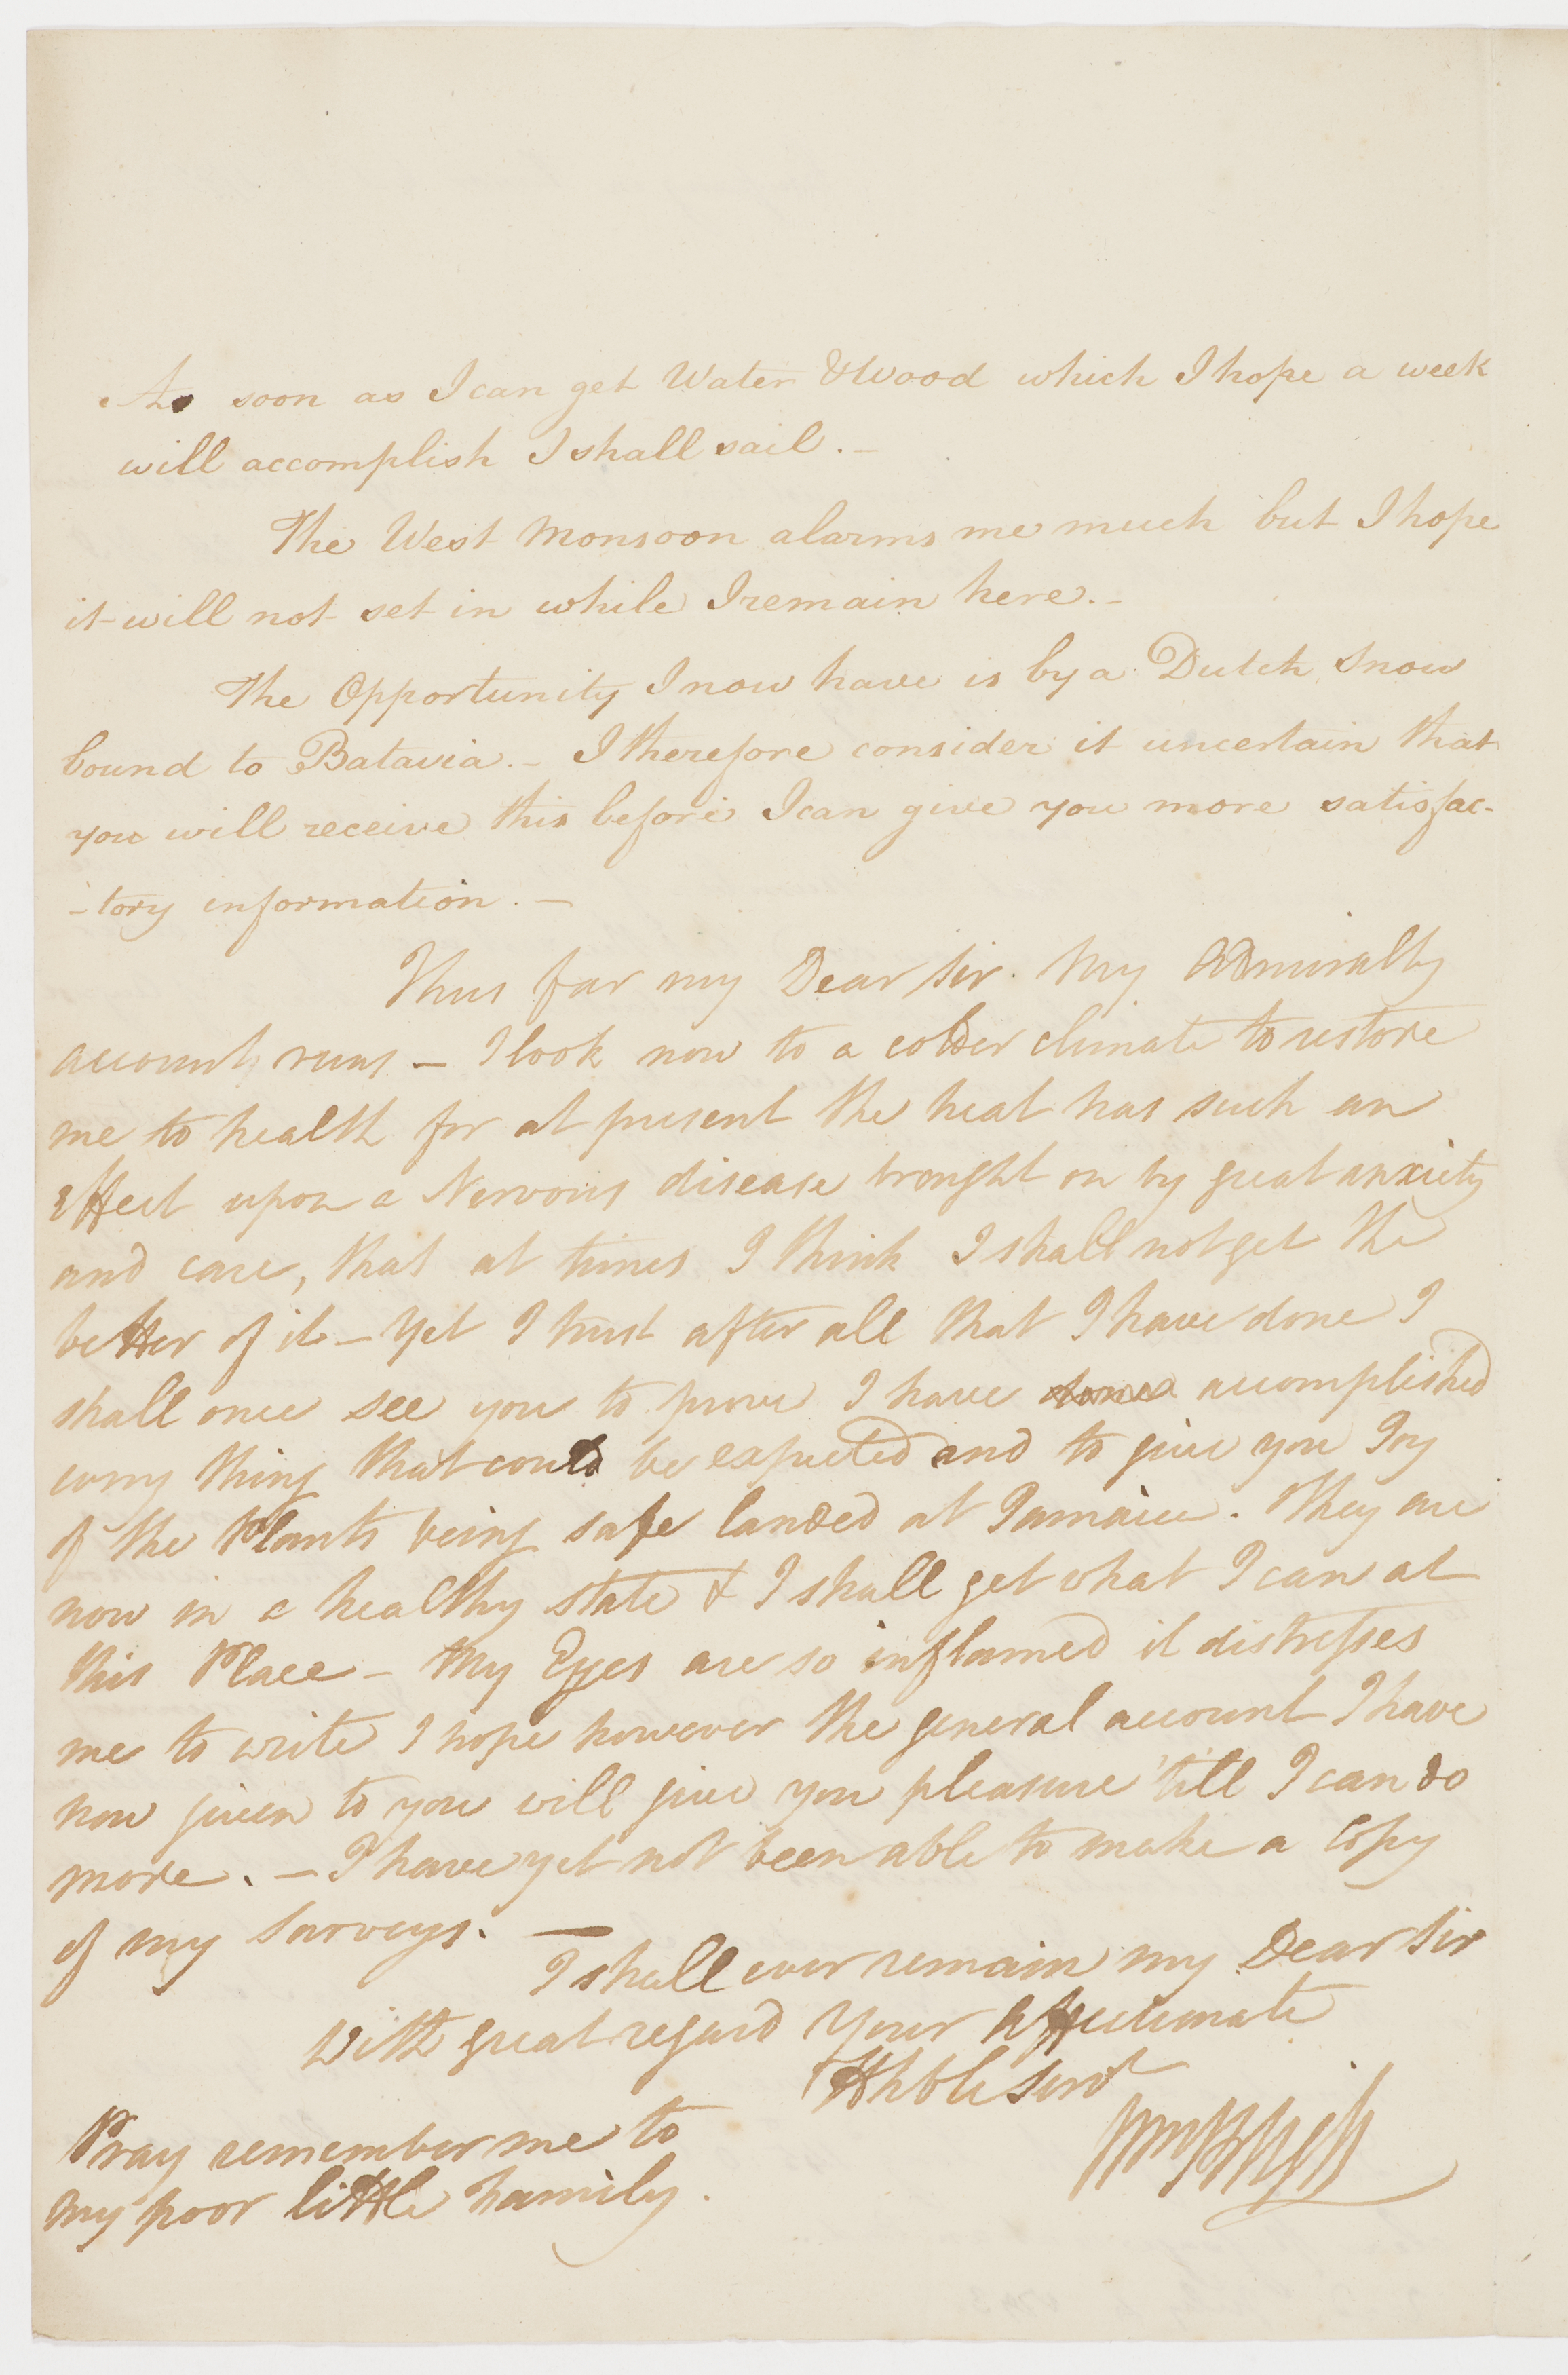 As soon as I can get Water & Wood which I hope a week
will accomplish I shall sail. –
The West Monsoon alarms me much but I hope
it will not set in while I remain here. –
The Opportunity I now have is by a Dutch Snow
bound to Batavia. – I therefore consider it uncertain that
you will receive this before I can give you more satisfac-
-tory information. –
Thus far my Dear Sir. My Admiralty
account runs – I look now to a colder climate to restore
me to health for at present the heat has such an
effect upon a Nervous disease brought on by great anxiety
and care, that at times I think I shall not get the
better of it – Yet I trust after all that I have done I
shall once see you to prove I have done accomplished
every thing that could be expected and to give you Joy
of the Plants being safe landed at Jamaica. They are
now in a healthy state & I shall get what I can at
this Place – My Eyes are so inflamed it distresses
me to write I hope however the general account I have
now given to you will give you pleasure 'till I can do
more. – I have yet not been able to make a Copy
of my Surveys. –
I shall ever remain my Dear Sir
With great regard Your Affectionate
Hble Servt
Wm Bligh
Pray remember me to
my poor little family.